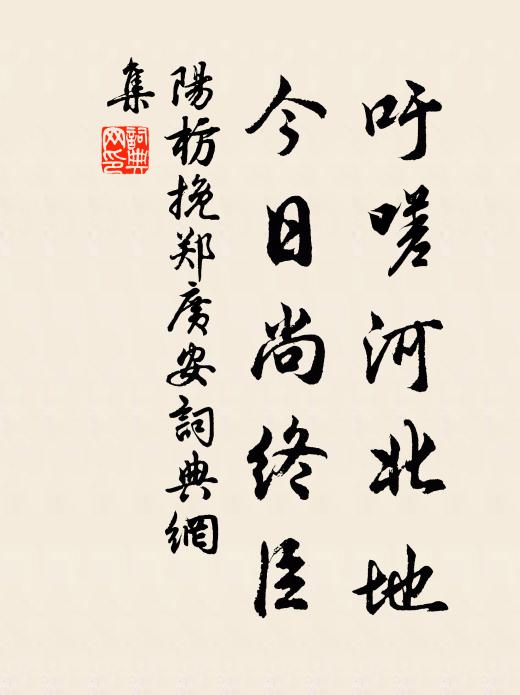 吁嗟河北地
今日尚终臣
陽枋挽郑廣安詞典網
集
詞典
网印